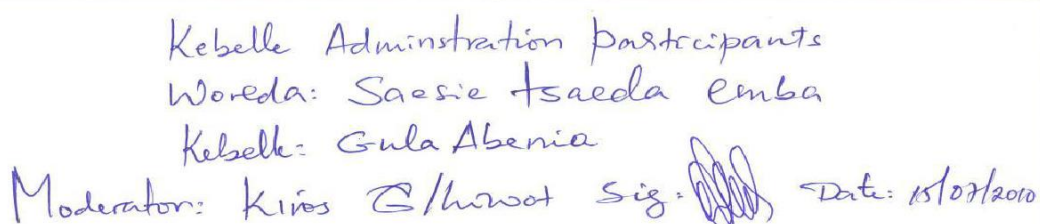 Kebelle Adminstration participants
Woreda: Saesie tsaeda emba
Kebelle: Gula Abenia
Moderator: Kiros G/hiwot Sig: Date: 15/07/2010